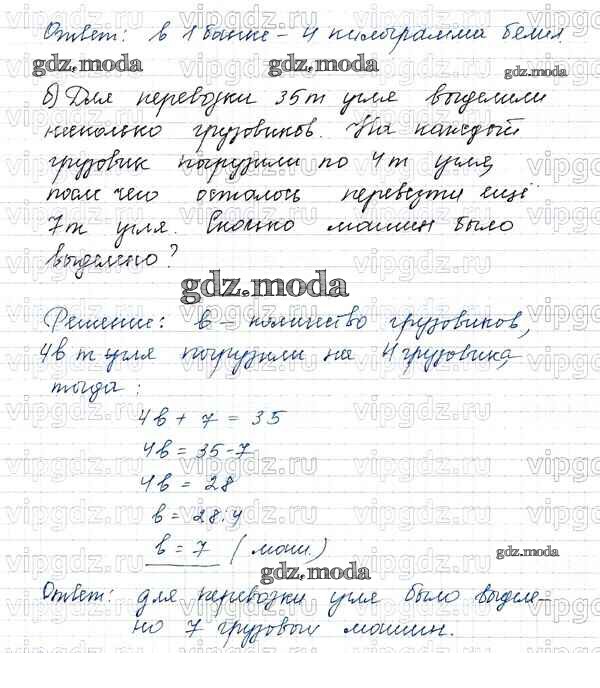 Ответ: в 1 банке – 4 килограмма белил.
gdz.moda gdz.moda
б) Для перевозки 35 т угля выделили
несколько грузовиков. На каждый
грузовик погрузили по 4 т угля,
после чего осталось перевезти ещё
7 т угля. Сколько машин было
выделено?
gdz.moda
Решение: в – количество грузовиков,
4в т угля погрузили на 4 грузовика,
тогда:
4в + 7 = 35
4в = 35-7
4в = 28
в = 28:4
в = 7 (маш.)
gdz.moda
gdz.moda
Ответ: для перевозки угля было выделе-
но 7 грузовых машин.